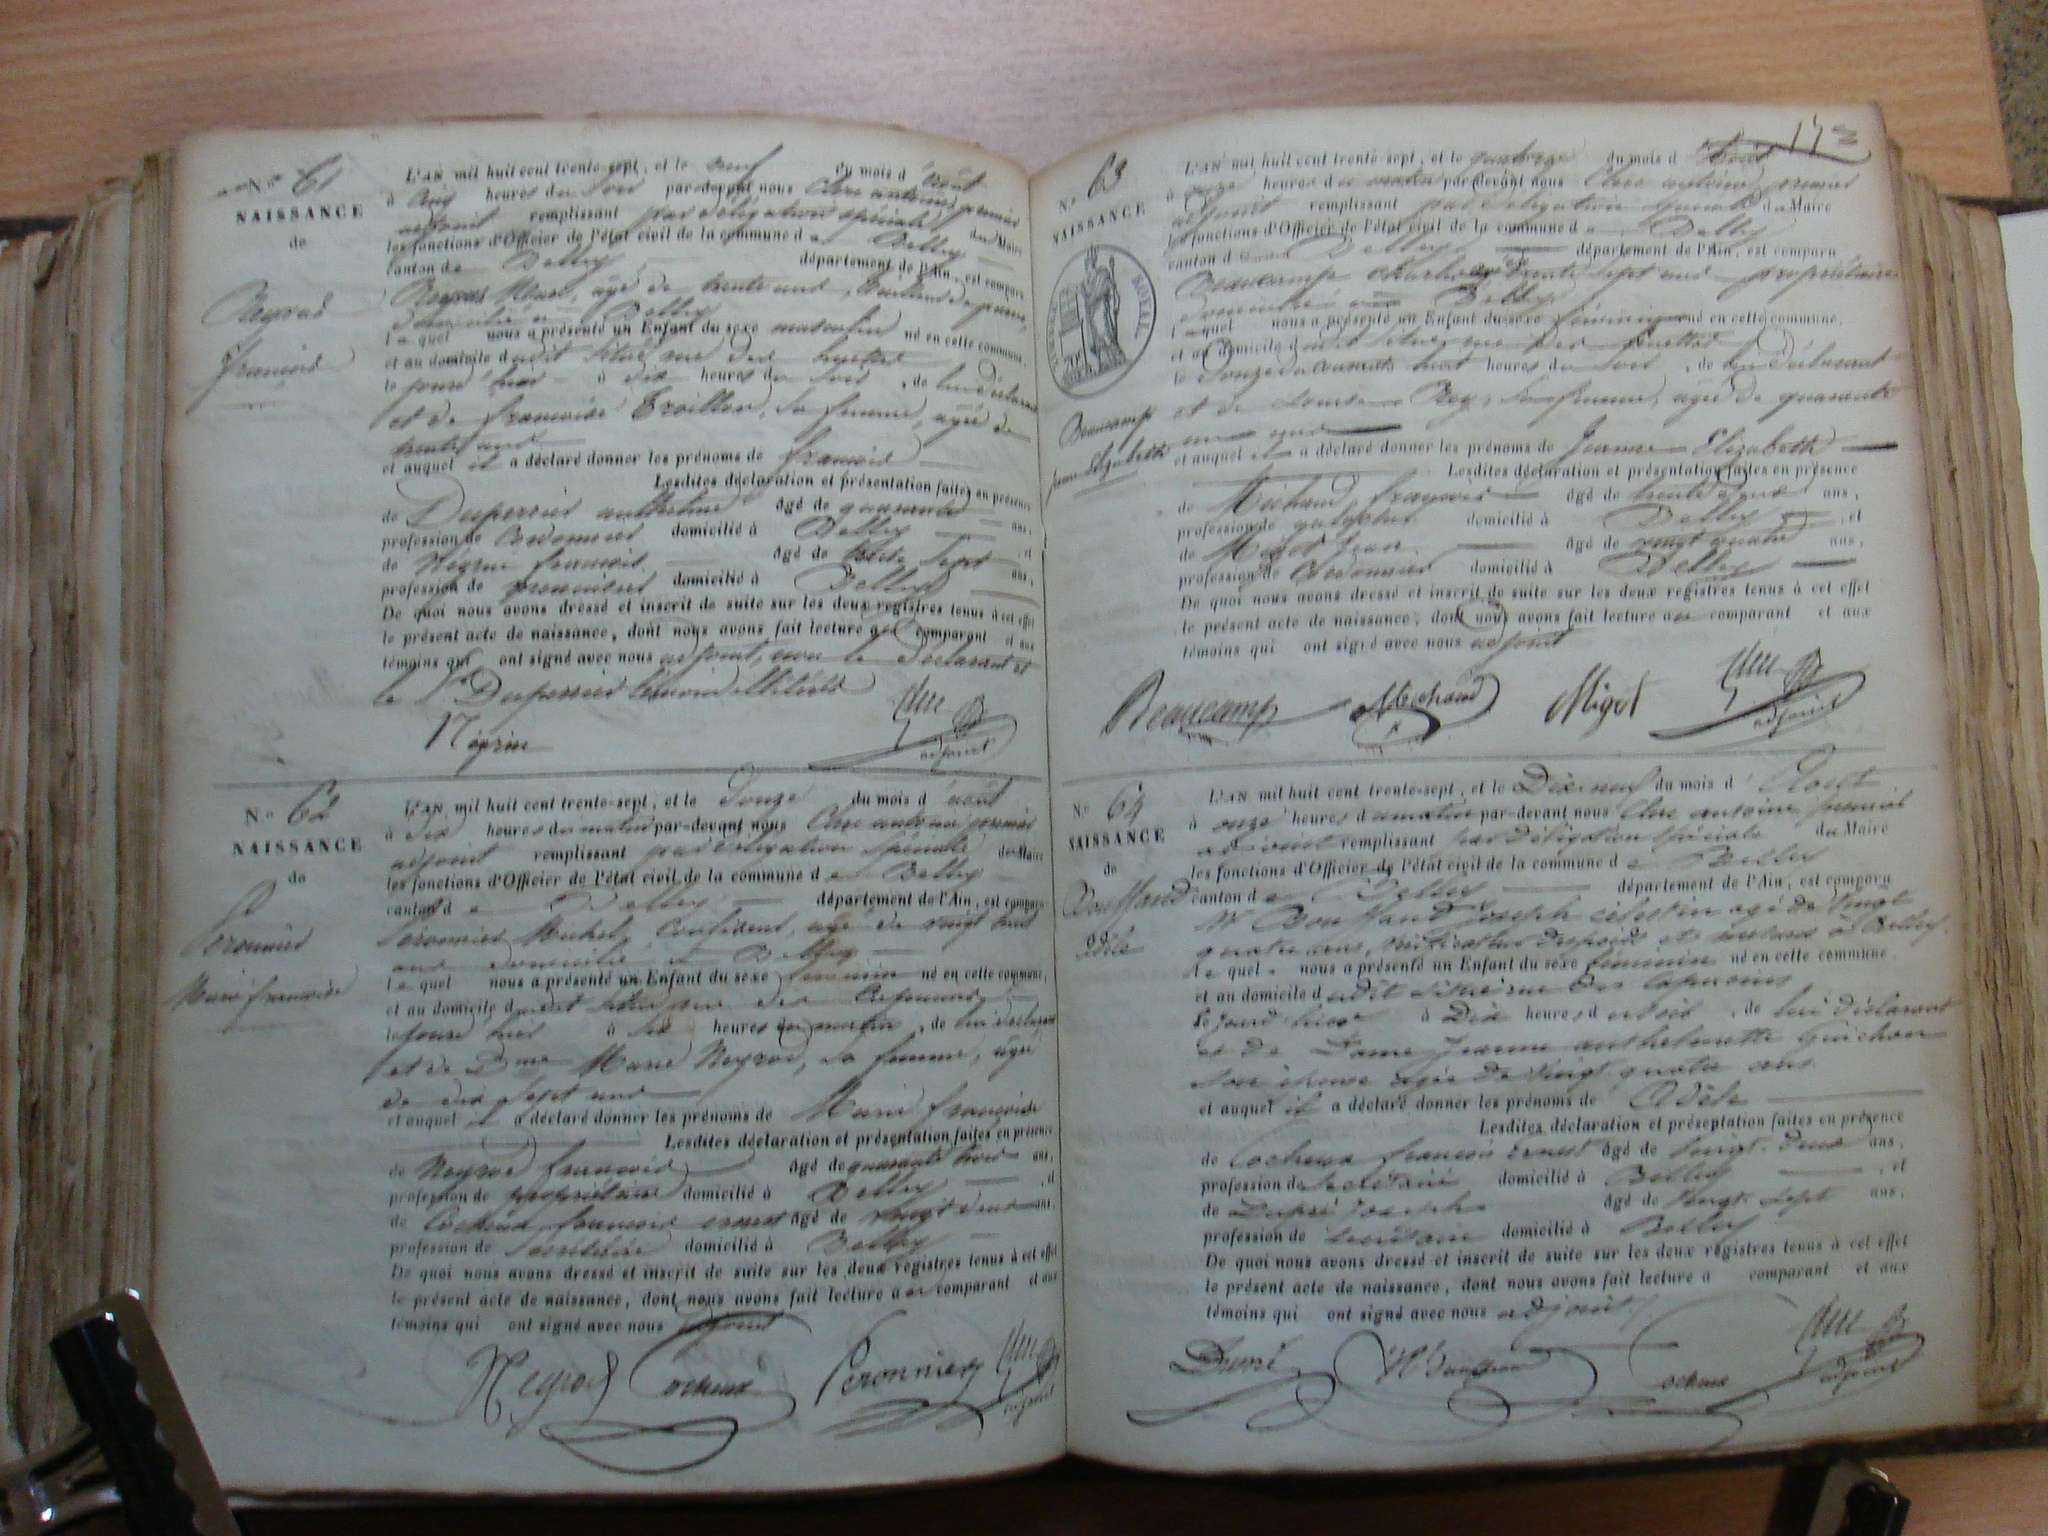 N.º 61
NAISSANCE
de
Neyrod
françois
L'AN mil huit cent trente-sept, et le neuf du mois d'août
à cinq heures du soir par-devant nous Clerc antoine, premier
adjoint remplissant par délégation spéciale du Maire
les fonctions d'Officier de l'état civil de la commune de Belley
canton de Belley département de l'Ain, est comparu
âgé de trente ans,
domicilié à Belley
lequel nous a présenté un Enfant du sexe masculin né en cette commune,
et au domicile dudit situé rue des
le jour d'hier à dix heures du soir, de lui Déclarant
et de françoise sa femme, âgée de
trente ans
et auquel il a déclaré donner les prénoms de françois
Lesdites déclaration et présentation faites en présence
de Duperrier anthelme âgé de quarante ans,
profession de Cordonnier domicilié à Belley et
de françois âgé de trente sept ans,
profession de domicilié à Belley
De quoi nous avons dressé et inscrit de suite sur les deux registres tenus à cet effet
le présent acte de naissance, dont nous avons fait lecture au comparant et aux
témoins qui ont signé avec nous adjoint, non le déclarant et
le Sr Duperrier témoin illitérés
adjoint
N.º 62
NAISSANCE
de
Peronnier
Marie françoise
L'AN mil huit cent trente-sept, et le Douze du mois d'août
à dix heures du matin par-devant nous Clerc antoine premier
adjoint remplissant par délégation spéciale du Maire
les fonctions d'Officier de l'état civil de la commune de Belley
canton de Belley département de l'Ain, est comparu
Peronnier Michel, Confiseur, âgé de vingt huit
ans domicilié à Belley
lequel nous a présenté un Enfant du sexe féminin né en cette commune,
et au domicile dudit situé rue des Capucins
le jour d'hier à six heures du matin, de lui déclarant
et de Dme Marie Neyrod, sa femme, âgée
de dix sept ans
et auquel il a déclaré donner les prénoms de Marie françoise
Lesdites déclaration et présentation faites en présence
de Neyrod françois âgé de quarante trois ans,
profession de propriétaire domicilié à Belley et
de Cocheux françois ernest âgé de vingt deux ans,
profession de secrétaire domicilié à Belley
De quoi nous avons dressé et inscrit de suite sur les deux registres tenus à cet effet
le présent acte de naissance, dont nous avons fait lecture au comparant et aux
témoins qui ont signé avec nous adjoint
Neyrod Cocheux Peronnier
adjoint
N.º 63
NAISSANCE
ROYAL
Beaucamp
jeanne Elizabeth
L'AN mil huit cent trente-sept, et le quatorze du mois d'Aout
à onze heures du matin par-devant nous Clerc antoine, premier
adjoint remplissant par délégation spéciale du Maire
les fonctions d'Officier de l'état civil de la commune de Belley
canton de Belley département de l'Ain, est comparu
Beaucamp trente sept ans propriétaire
domicilié à Belley
lequel nous a présenté un Enfant du sexe féminin né en cette commune,
et au domicile dudit situé rue des
le Douze du courant à huit heures du soir, de lui Déclarant
et de Louise Rey, sa femme, âgée de quarante
un ans
et auquel il a déclaré donner les prénoms de Jeanne Elizabeth
Lesdites déclaration et présentation faites en présence
de Michaud françois âgé de trente deux ans,
profession de domicilié à Belley et
de Migot Jean âgé de vingt quatre ans,
profession de Cordonnier domicilié à Belley
De quoi nous avons dressé et inscrit de suite sur les deux registres tenus à cet effet
le présent acte de naissance, dont nous avons fait lecture au comparant et aux
témoins qui ont signé avec nous adjoint
Beaucamp Michaud Migot
adjoint
N.º 64
NAISSANCE
de
Bouffand
adèle
L'AN mil huit cent trente-sept, et le Dix neuf du mois d'Aout
à onze heures du matin par-devant nous Clerc antoine premier
adjoint remplissant par délégation spéciale du Maire
les fonctions d'Officier de l'état civil de la commune de Belley
canton de Belley département de l'Ain, est comparu
Mr Bouffand Joseph célestin agé de vingt
quatre ans, vérificateur des poids et mesures à Belley,
lequel nous a présenté un Enfant du sexe féminin né en cette commune
et au domicile dudit situé rue des Capucins
le jour d'hier à Dix heures du soir, de lui déclarant
et de Dame Jeanne anthelmette Guichon
son épouse agée de vingt quatre ans
et auquel il a déclaré donner les prénoms de Adèle
Lesdites déclaration et présentation faites en présence
de Cocheux françois ernest âgé de vingt-deux ans,
profession de secrétaire domicilié à Belley et
de Dupré Joseph âgé de vingt-sept ans,
profession de domicilié à Belley
De quoi nous avons dressé et inscrit de suite sur les deux registres tenus à cet effet
le présent acte de naissance, dont nous avons fait lecture à comparant et aux
témoins qui ont signé avec nous adjoint.
Dupré Cocheux
adjoint